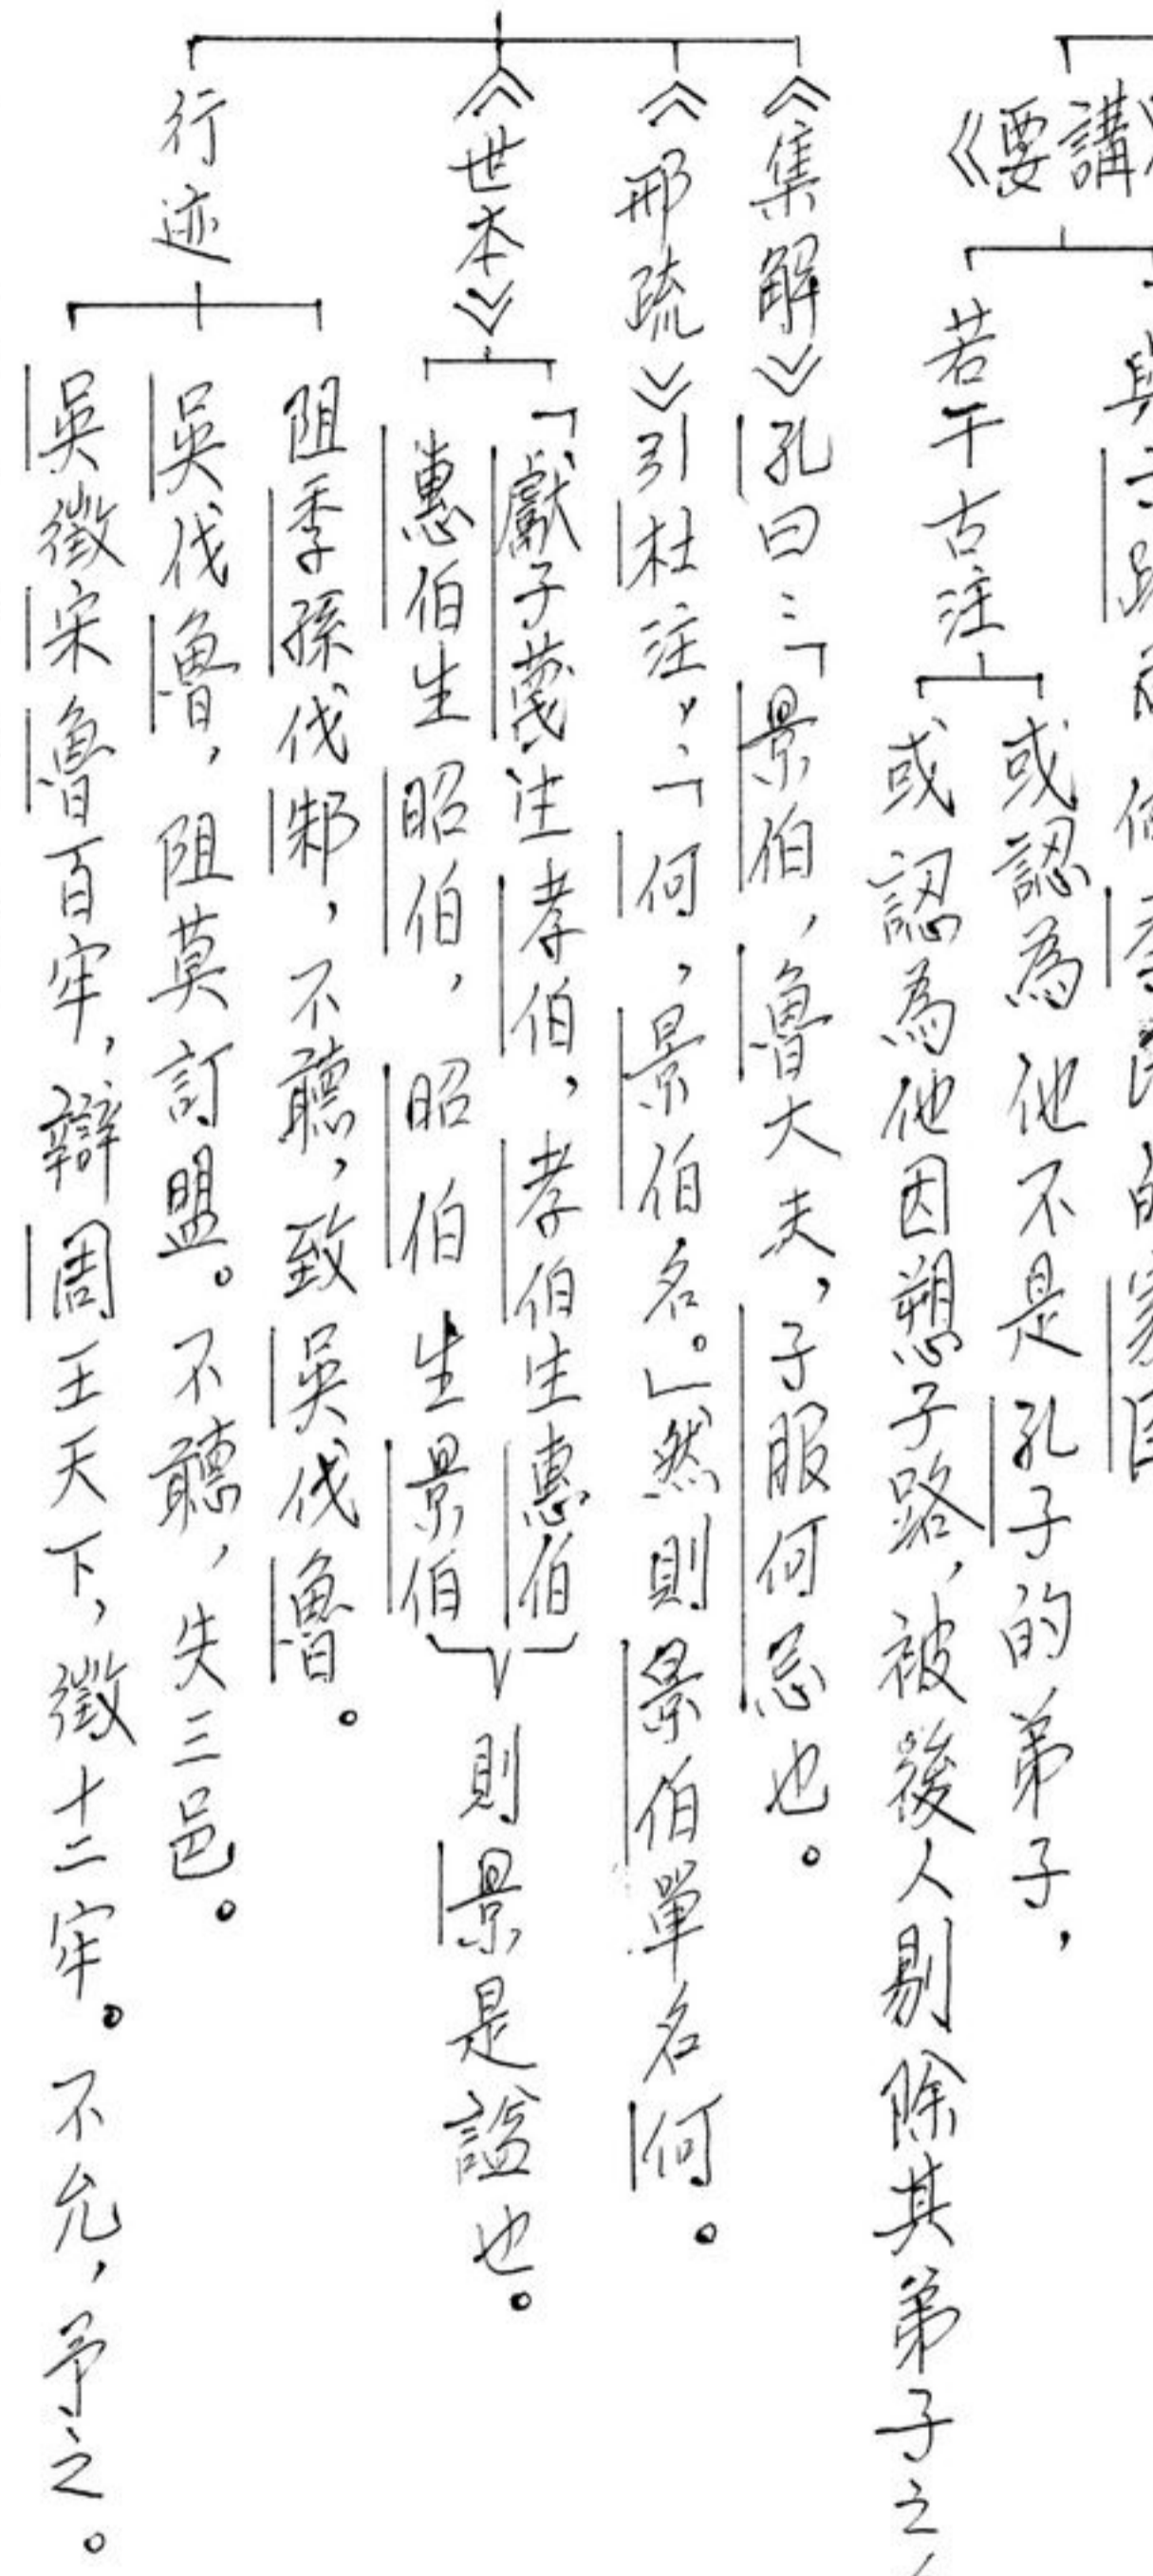 《要講》
若干古注
或認為他不是孔子的弟子，
或認為他因愬子路，被後人剔除其弟子之
《集解》孔曰：「景伯，魯大夫，子服何忌也。
《邢疏》引杜注，「何，景伯名。」然則景伯單名何。
《世本》
「獻子蔑生孝伯，孝伯生惠伯
惠伯生昭伯，昭伯生景伯
則景是諡也。
行迹
阻季孫伐邾，不聽，致吳伐魯。
吳伐魯，阻莫訂盟。不聽，失三邑。
吳徵宋魯百牢，辯周王天下，徵十二牢。不允，予之。